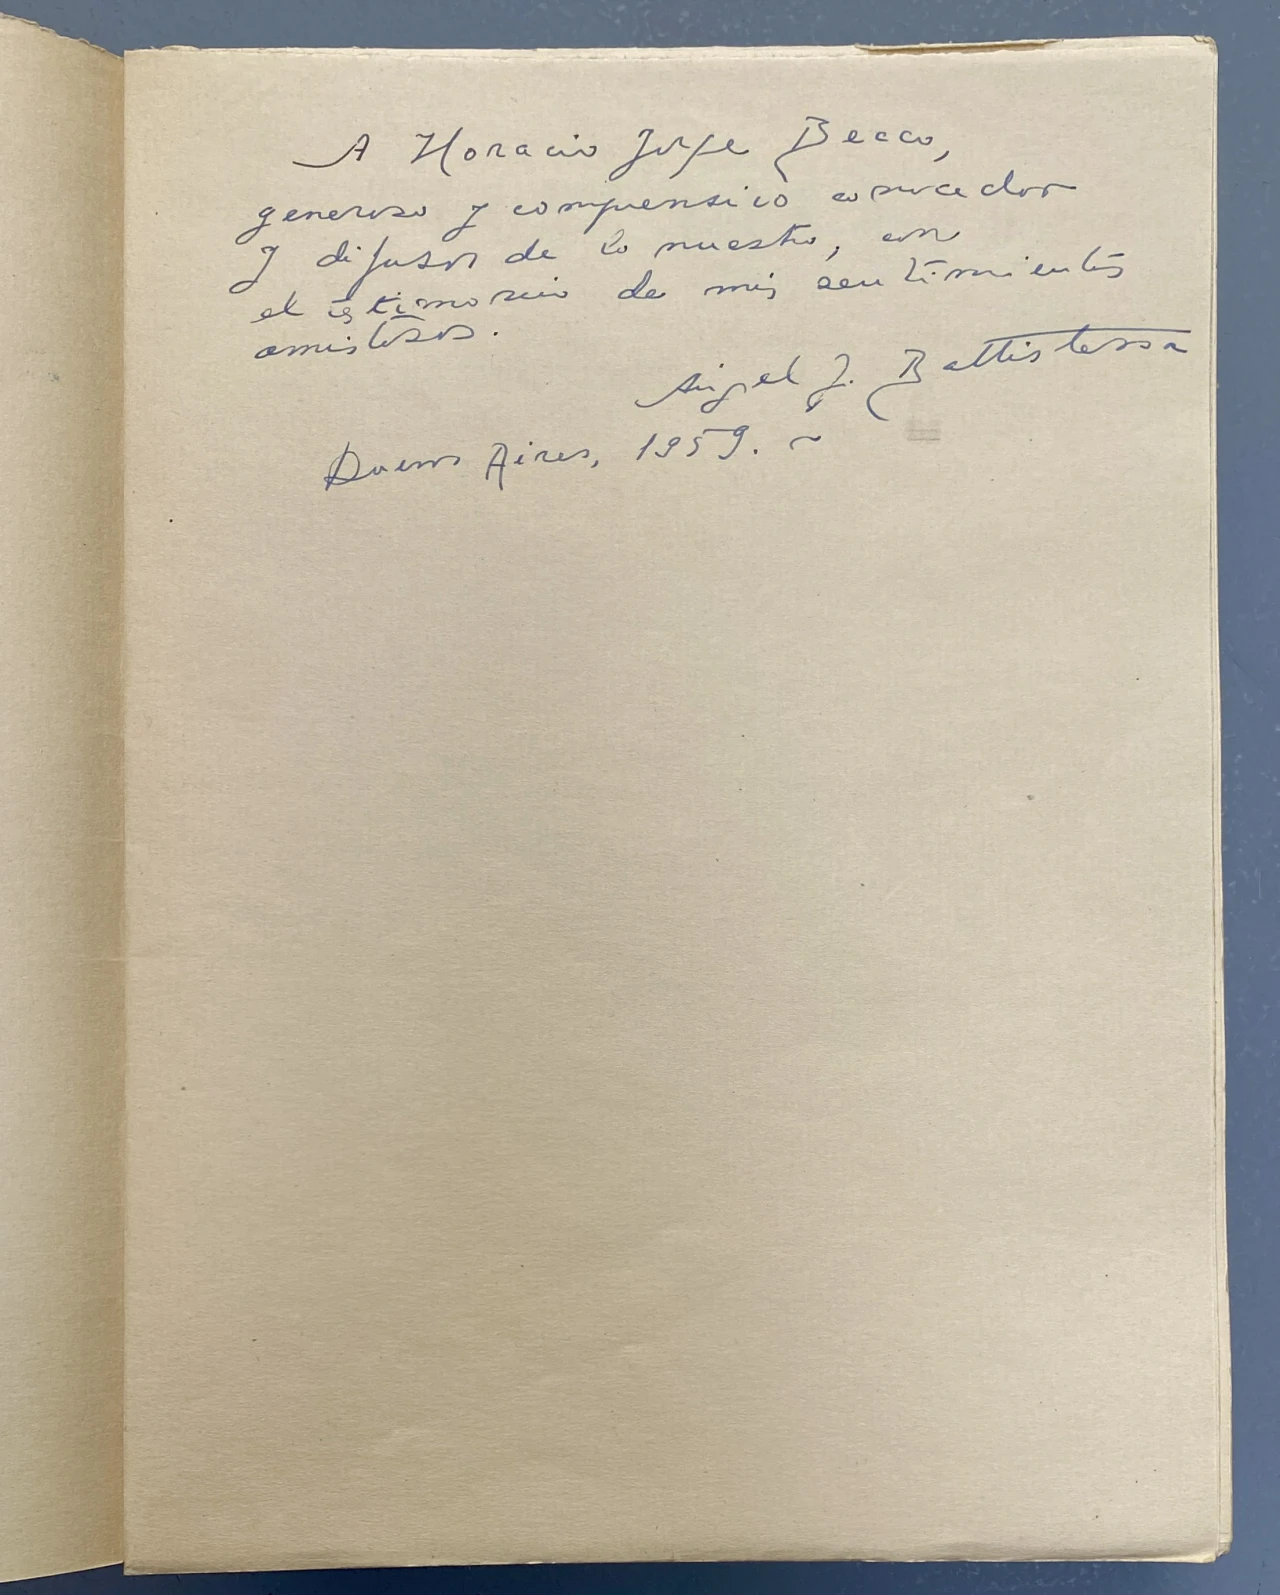 A Horacio Jorge Becco,
generoso y comprensivo conocedor
y difusor de lo nuestro, con
el testimonio de mis sentimientos
amistosos.
Ángel J. Battistessa
Buenos Aires, 1959. ~